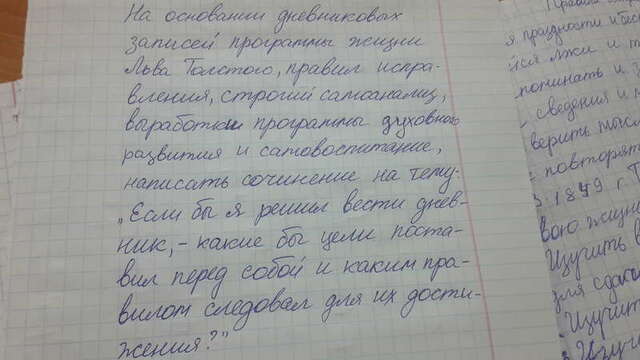 На основании дневниковых
записей программы жизни
Льва Толстого, правил испра-
вления, строгий самоанализ,
выработки программы духовного
развития и самовоспитание,
написать сочинение на тему:
„Если бы я решил вести днев-
ник, - какие бы цели поста-
вил перед собой и каким пра-
вилам следовал для их дости-
жения?"
Правила
я праздности и бес
йся лжи и т
поминать и з
сведения и м
верить мысл
повторят
В 1849 г. Т
вою жизн
Изучить в
для сдачи
Изучит
Изучи